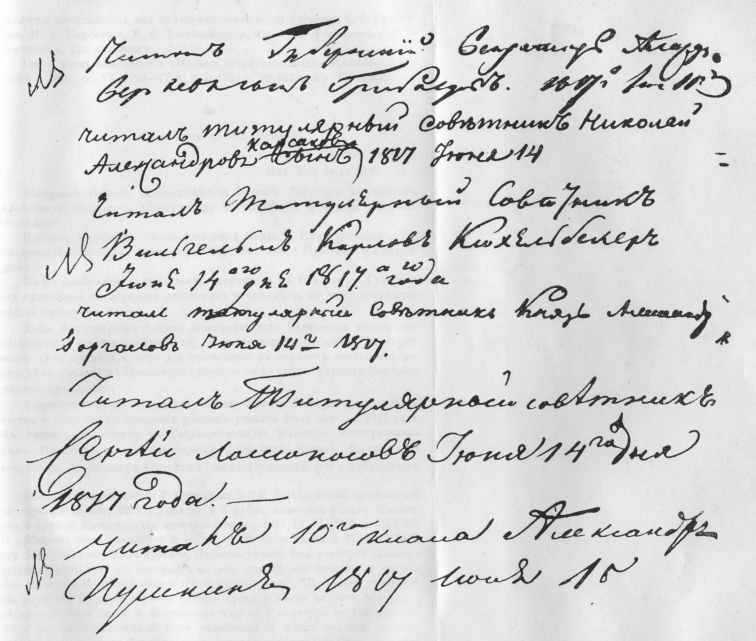 Читалъ Губернскій Секретарь Александръ
Сергеевъ сынъ Грибоедовъ. 1817го Iюн 15го
читалъ титулярный совѣтникъ Николай
Корсаковъ
Александровъ сынъ 1817 Iюня 14
Читалъ Титулерный Совѣтникъ
Вильгельмъ Карловъ Кюхельбекеръ
Iюнѣ 14аго дне 1817аго года
читалъ титулярный совѣтникъ Князь Александръ
Горчаковъ Iюня 14го 1817.
Читалъ Титулярный совѣтникъ
Сергѣй Ломоносовъ Iюня 14го дня
1817 года
Читалъ 10го класса Александръ
Пушкинъ, 1817 Iюня 15